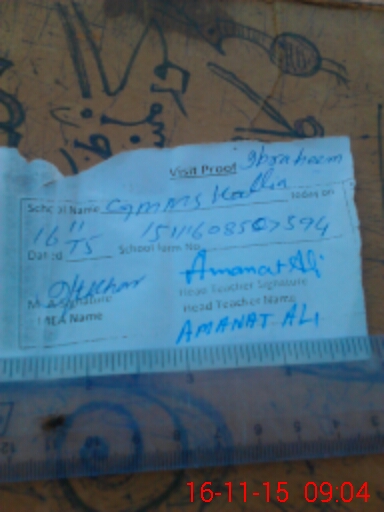 Visit Proof Ibraheem
School Name GGMMS Kallia Today on
16/11/15 School form No 15111608507594
Dated
Amanat Ali
MEA Signature Head Teacher Signature
MEA Name Head Teacher Name
AMANAT ALI
16-11-15 09:04